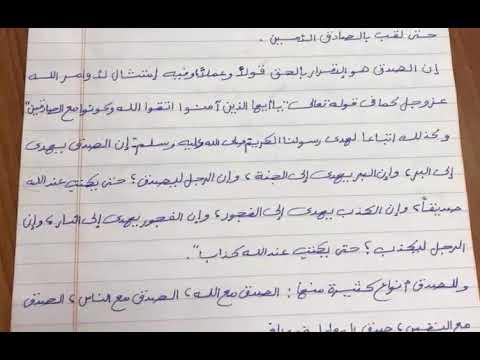 حتى لقب بالصادق الأمين .
إن الصدق هو الإقرار بالحق قولاً وعملاً وفيه إمتثال لأوامر الله
عز وجل كما في قوله تعالى "يا أيها الذين آمنوا اتقوا الله وكونوا مع الصادقين"
وكذلك اتباعا لهدى رسولنا الكريم صلى الله عليه وسلم "إن الصدق يهدى
إلى البر ، وإن البر يهدى إلى الجنة ، وإن الرجل ليصدق ؛ حتى يكتب عند الله
صديقاً ، وإن الكذب يهدى إلى الفجور ، وإن الفجور يهدى إلى النار ، وإن
الرجل ليكذب ؛ حتى يكتب عند الله كذابا" .
وللصدق أنواع كثيرة منها : الصدق مع الله ، الصدق مع الناس ، الصدق
مع النفس ،